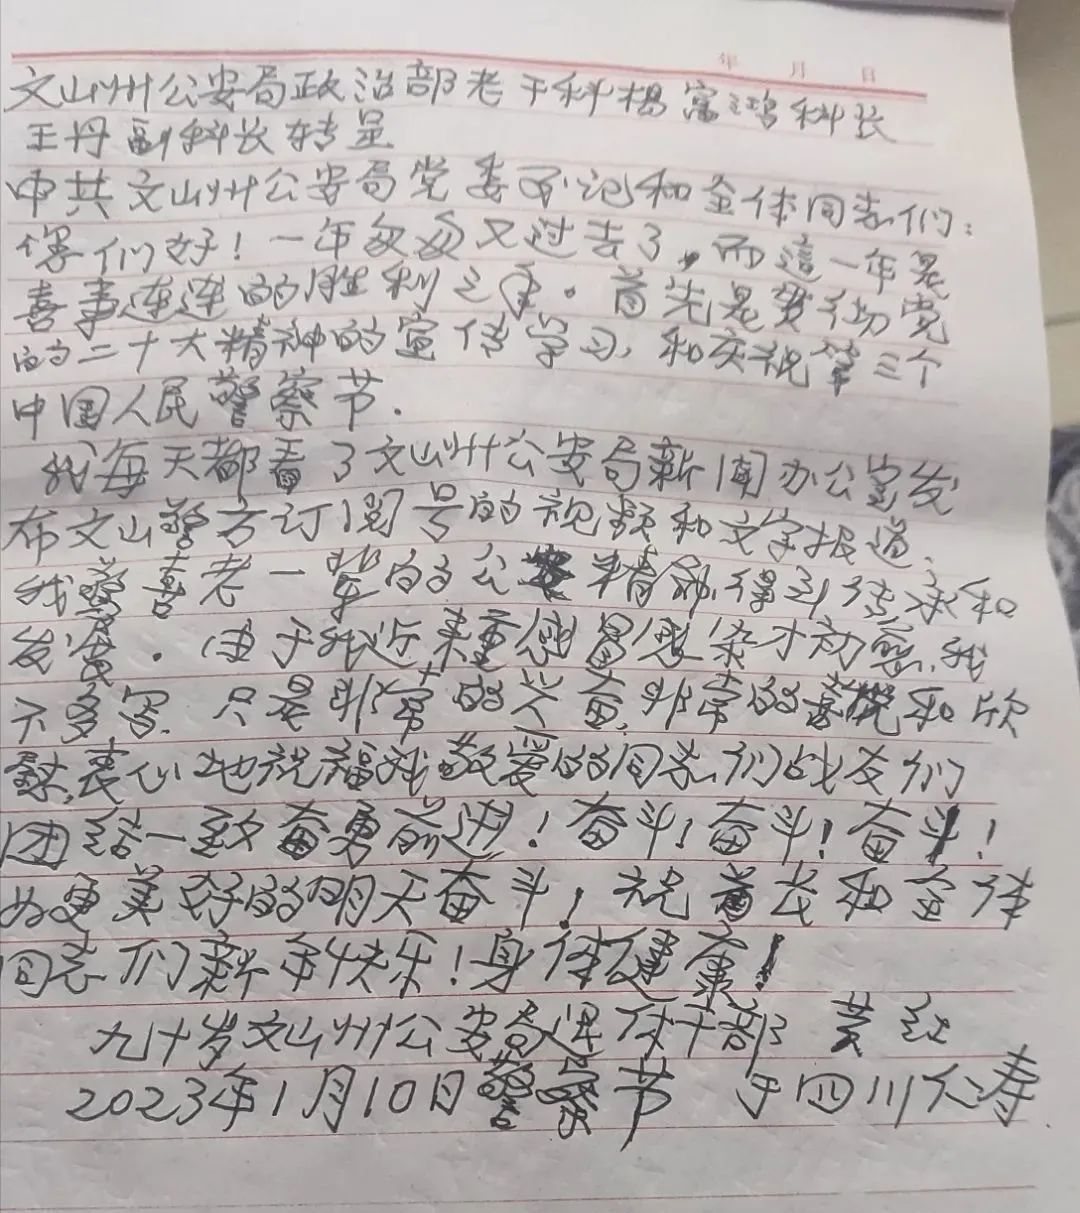 年 月 日
文山州公安局政治部老干科杨富鸿科长
王丹副科长转呈
中共文山州公安局党委书记和全体同志们：
你们好！一年匆匆又过去了，而這一年是
喜事连连的胜利之年。首先是贯彻党
的二十大精神的宣传学习，和庆祝第三个
中国人民警察节.
我每天都看了文山州公安局新闻办公室发
布文山警方订阅号的视频和文字报道，
我驚喜老一辈的公安精神得到传承和
发展.由于我近来重感冒感染才初愈，我
不多写.只是非常的兴奋，非常的喜悦和欣
慰，衷心地祝福我敬爱的同志们战友们
团结一致奋勇前进！奋斗！奋斗！奋斗！
为更美好的明天奋斗，祝首长和全体
同志们新年快乐！身体健康！
九十岁文山州公安局退休干部 黄
2023年1月10日警察节 于四川仁寿